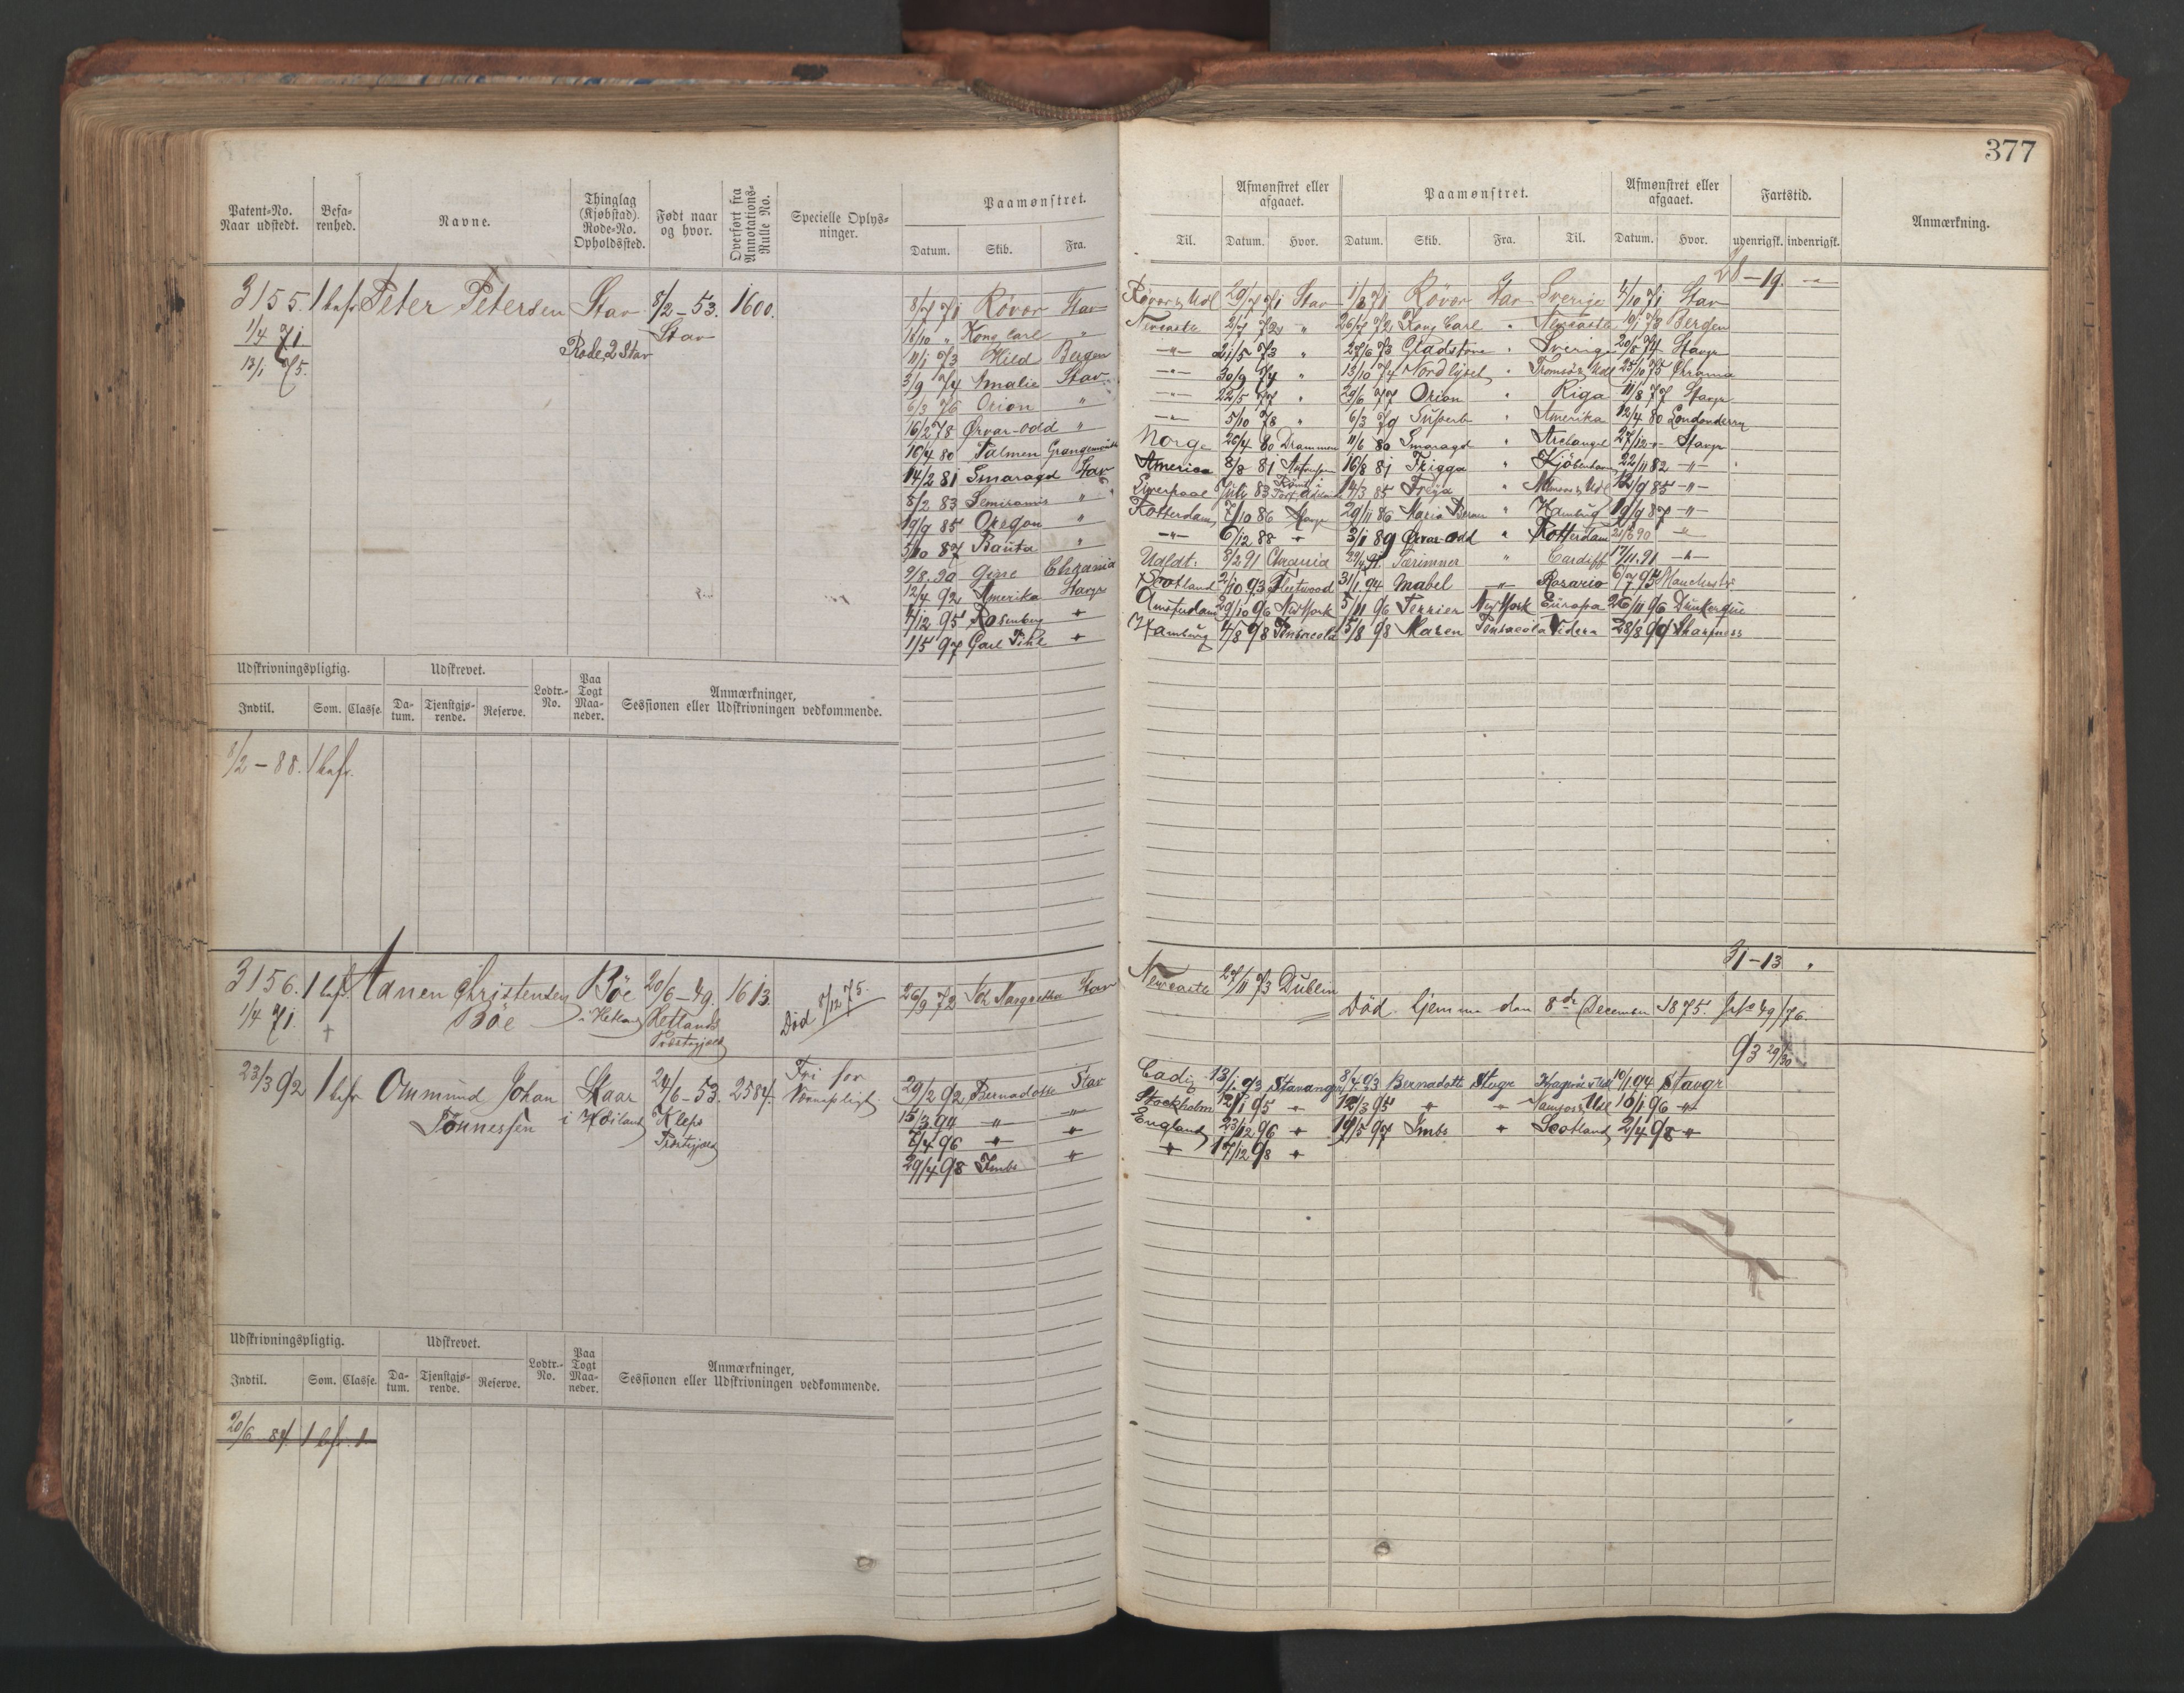 377
Patent-No. Naar udstedt. Befarenhed. Navne. Thinglag (Kjøbstad). Rode-No. Opholdssted. Født naar og hvor. Overført fra Annotations-Rulle No. Specielle Oplysninger. Paamønstret. Datum. Skib. Fra.
Til. Afmønstret eller afgaaet. Datum. Hvor. Paamønstret. Datum. Skib. Fra. Til. Afmønstret eller afgaaet. Datum. Hvor. Fartstid. udenrigsk. indenrigsk. Anmærkning.
28-19. -"-
3155. 1 bef. Peter Petersen Stav 8/2-53. 1600.
1/4 71 Stav
13/1 75. Rode 2 Stav
8/7 71 Rövor Stav 29/7 71 Stav 1/8 71 Rövor Stav Sverige 4/10 71 Stav
18/10 " Kong Carl " Newcastle 2/7 72 " 26/7 72 Kong Carl " Newcastle 10/1 73 Bergen
11/1 73 Hild Bergen -"- 21/5 73 " 27/6 73 Gladstone " Sverige 20/8 74 Stavgr
3/9 74 Amalie Stav -"- 30/9 74 " 13/10 74 Nordlyset " Tromsö & Udl 25/10 75
6/3 76 Orion " -"- 22/5 77 " 29/6 77 Orion " Riga 11/8 77 Stavgr
16/2 78 Ørvar-Odd " -"- 5/10 78 " 6/3 79 Superb " Amerika 12/4 80 Londonderry
16/4 80 Palmen Grangemouth Norge 26/4 80 Drammen 11/6 80 Smaragd " Archangel 27/12 -"- Stavgr
14/2 81 Smaragd Stav America 8/8 81 16/8 81 Frigga " Kjöbenhavn 22/11 82 -"-
8/2 83 Semiramis " Liverpool 83 14/3 85 Freya " 12/9 85 -"-
19/9 85 Oregon " Rotterdam 7/10 86 Stavgr 29/11 86 Maria " Hamburg 19/9 87 -"-
5/10 87 Bauta " -"- 6/12 88 " 3/1 89 Ørvar-Odd " Rotterdam 90 "
9/8 90 Chrania Udldt: 8/2 91 Chrania 91 Særimner " Cardiff 17/11 91 -"-
12/4 92 Amerika Stavgr Scotland 2/10 93 Fleetwood 31/1 94 Mabel -"- Rosario 6/7 95 Manchester
4/12 95 Rosenberg " Amsterdam 29/10 96 New York 5/11 96 Terrier New York Europa 26/11 96 Dunkerque
1/5 97 Carl Pihl " Hamburg 4/8 98 Pensacola 15/8 98 Maren Pensacola 28/8 99 Sharpness
Udskrivningspligtig. Udskrevet. Lodtr.-No. Paa Togt Maaneder. Anmærkninger, Sessionen eller Udskrivningen vedkommende.
Indtil. Som. Classe. Datum. Tjenstgjørende. Reserve.
8/2-88. 1 bef.
31-13 "
3156. 1 bef. Aanen Christensen Böe 20/6-49. 1613. Död 8/12 75. 26/9 72 Stav Newcastle 27/11 73 Dublin
1/4 71. Böe i Hetland Hetlands Præstegjeld
Död hjemme den 8de December 1875. 49/76.
93 29/30
23/3 92 1 bef. Ommund Johan Skaar 24/6-53. 2584. Fri for Værnepligt.
Tönnessen i Höiland Kleps Præstegjeld
29/2 92 Bernadotte Stav Cadiz 13/1 93 Stavanger 8/4 93 Bernadotte Stavgr Kragerö & Udl 10/1 94 Stavgr
15/3 94 -"- -"- Stockholm 12/1 95 " 12/3 95 " " Namsos & Udl 16/1 96 "
7/4 96 " " England 23/12 96 " 19/5 97 Imbs " Scotland 2/4 98 "
29/4 98 Imbs " " 17/12 98 "
Udskrivningspligtig. Udskrevet. Lodtr.-No. Paa Togt Maaneder. Anmærkninger, Sessionen eller Udskrivningen vedkommende.
Indtil. Som. Classe. Datum. Tjenstgjørende. Reserve.
20/6 84 1 bef.